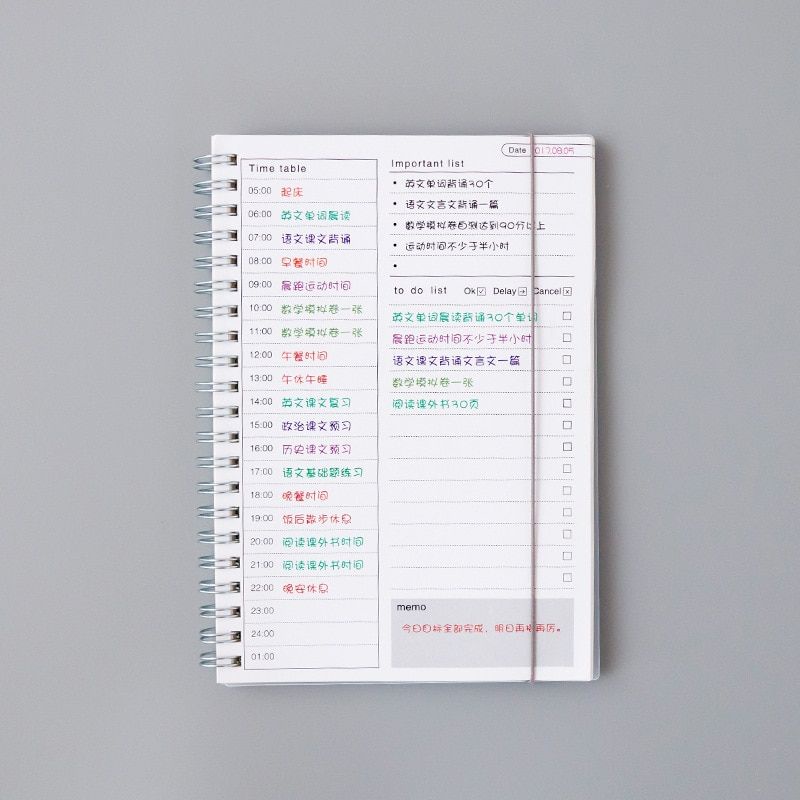 Date 2017.08.05
Time table
05:00 起床
06:00 英文单词晨读
07:00 语文课文背诵
08:00 早餐时间
09:00 晨跑运动时间
10:00 数学模拟卷一张
11:00 数学模拟卷一张
12:00 午餐时间
13:00 午休午睡
14:00 英文课文复习
15:00 政治课文预习
16:00 历史课文预习
17:00 语文基础题练习
18:00 晚餐时间
19:00 饭后散步休息
20:00 阅读课外书时间
21:00 阅读课外书时间
22:00 晚安休息
23:00
24:00
01:00
Important list
• 英文单词背诵30个
• 语文文言文背诵一篇
• 数学模拟卷自测达到90分以上
• 运动时间不少于半小时
•
to do list Ok Delay Cancel
英文单词晨读背诵30个单词
晨跑运动时间不少于半小时
语文课文背诵文言文一篇
数学模拟卷一张
阅读课外书30页
memo
今日目标全部完成，明日再接再厉。